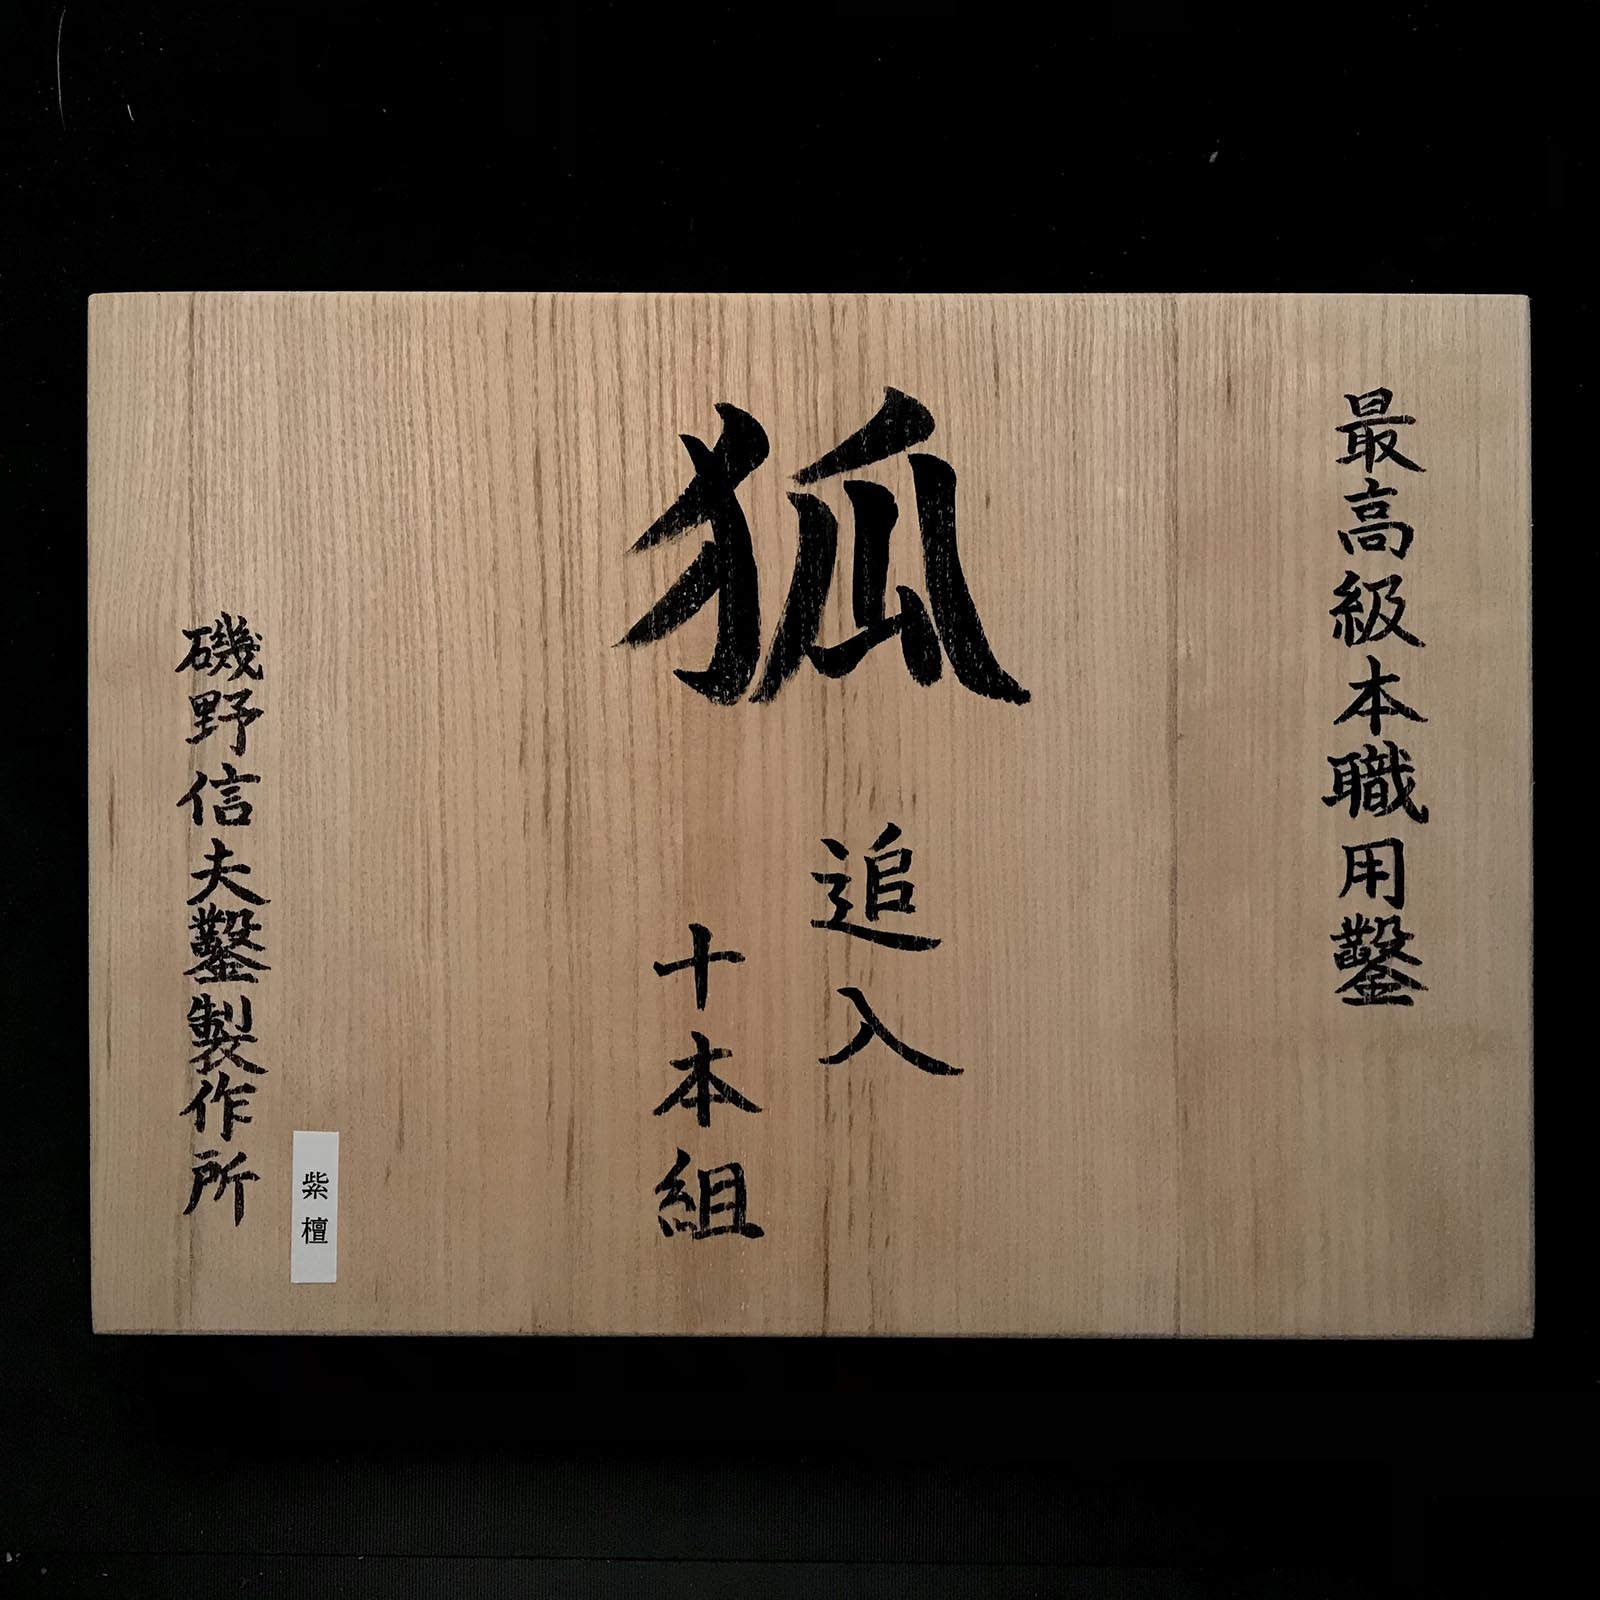 最高級本職用鑿
狐
追入
十本組
紫檀
磯野信夫鑿製作所